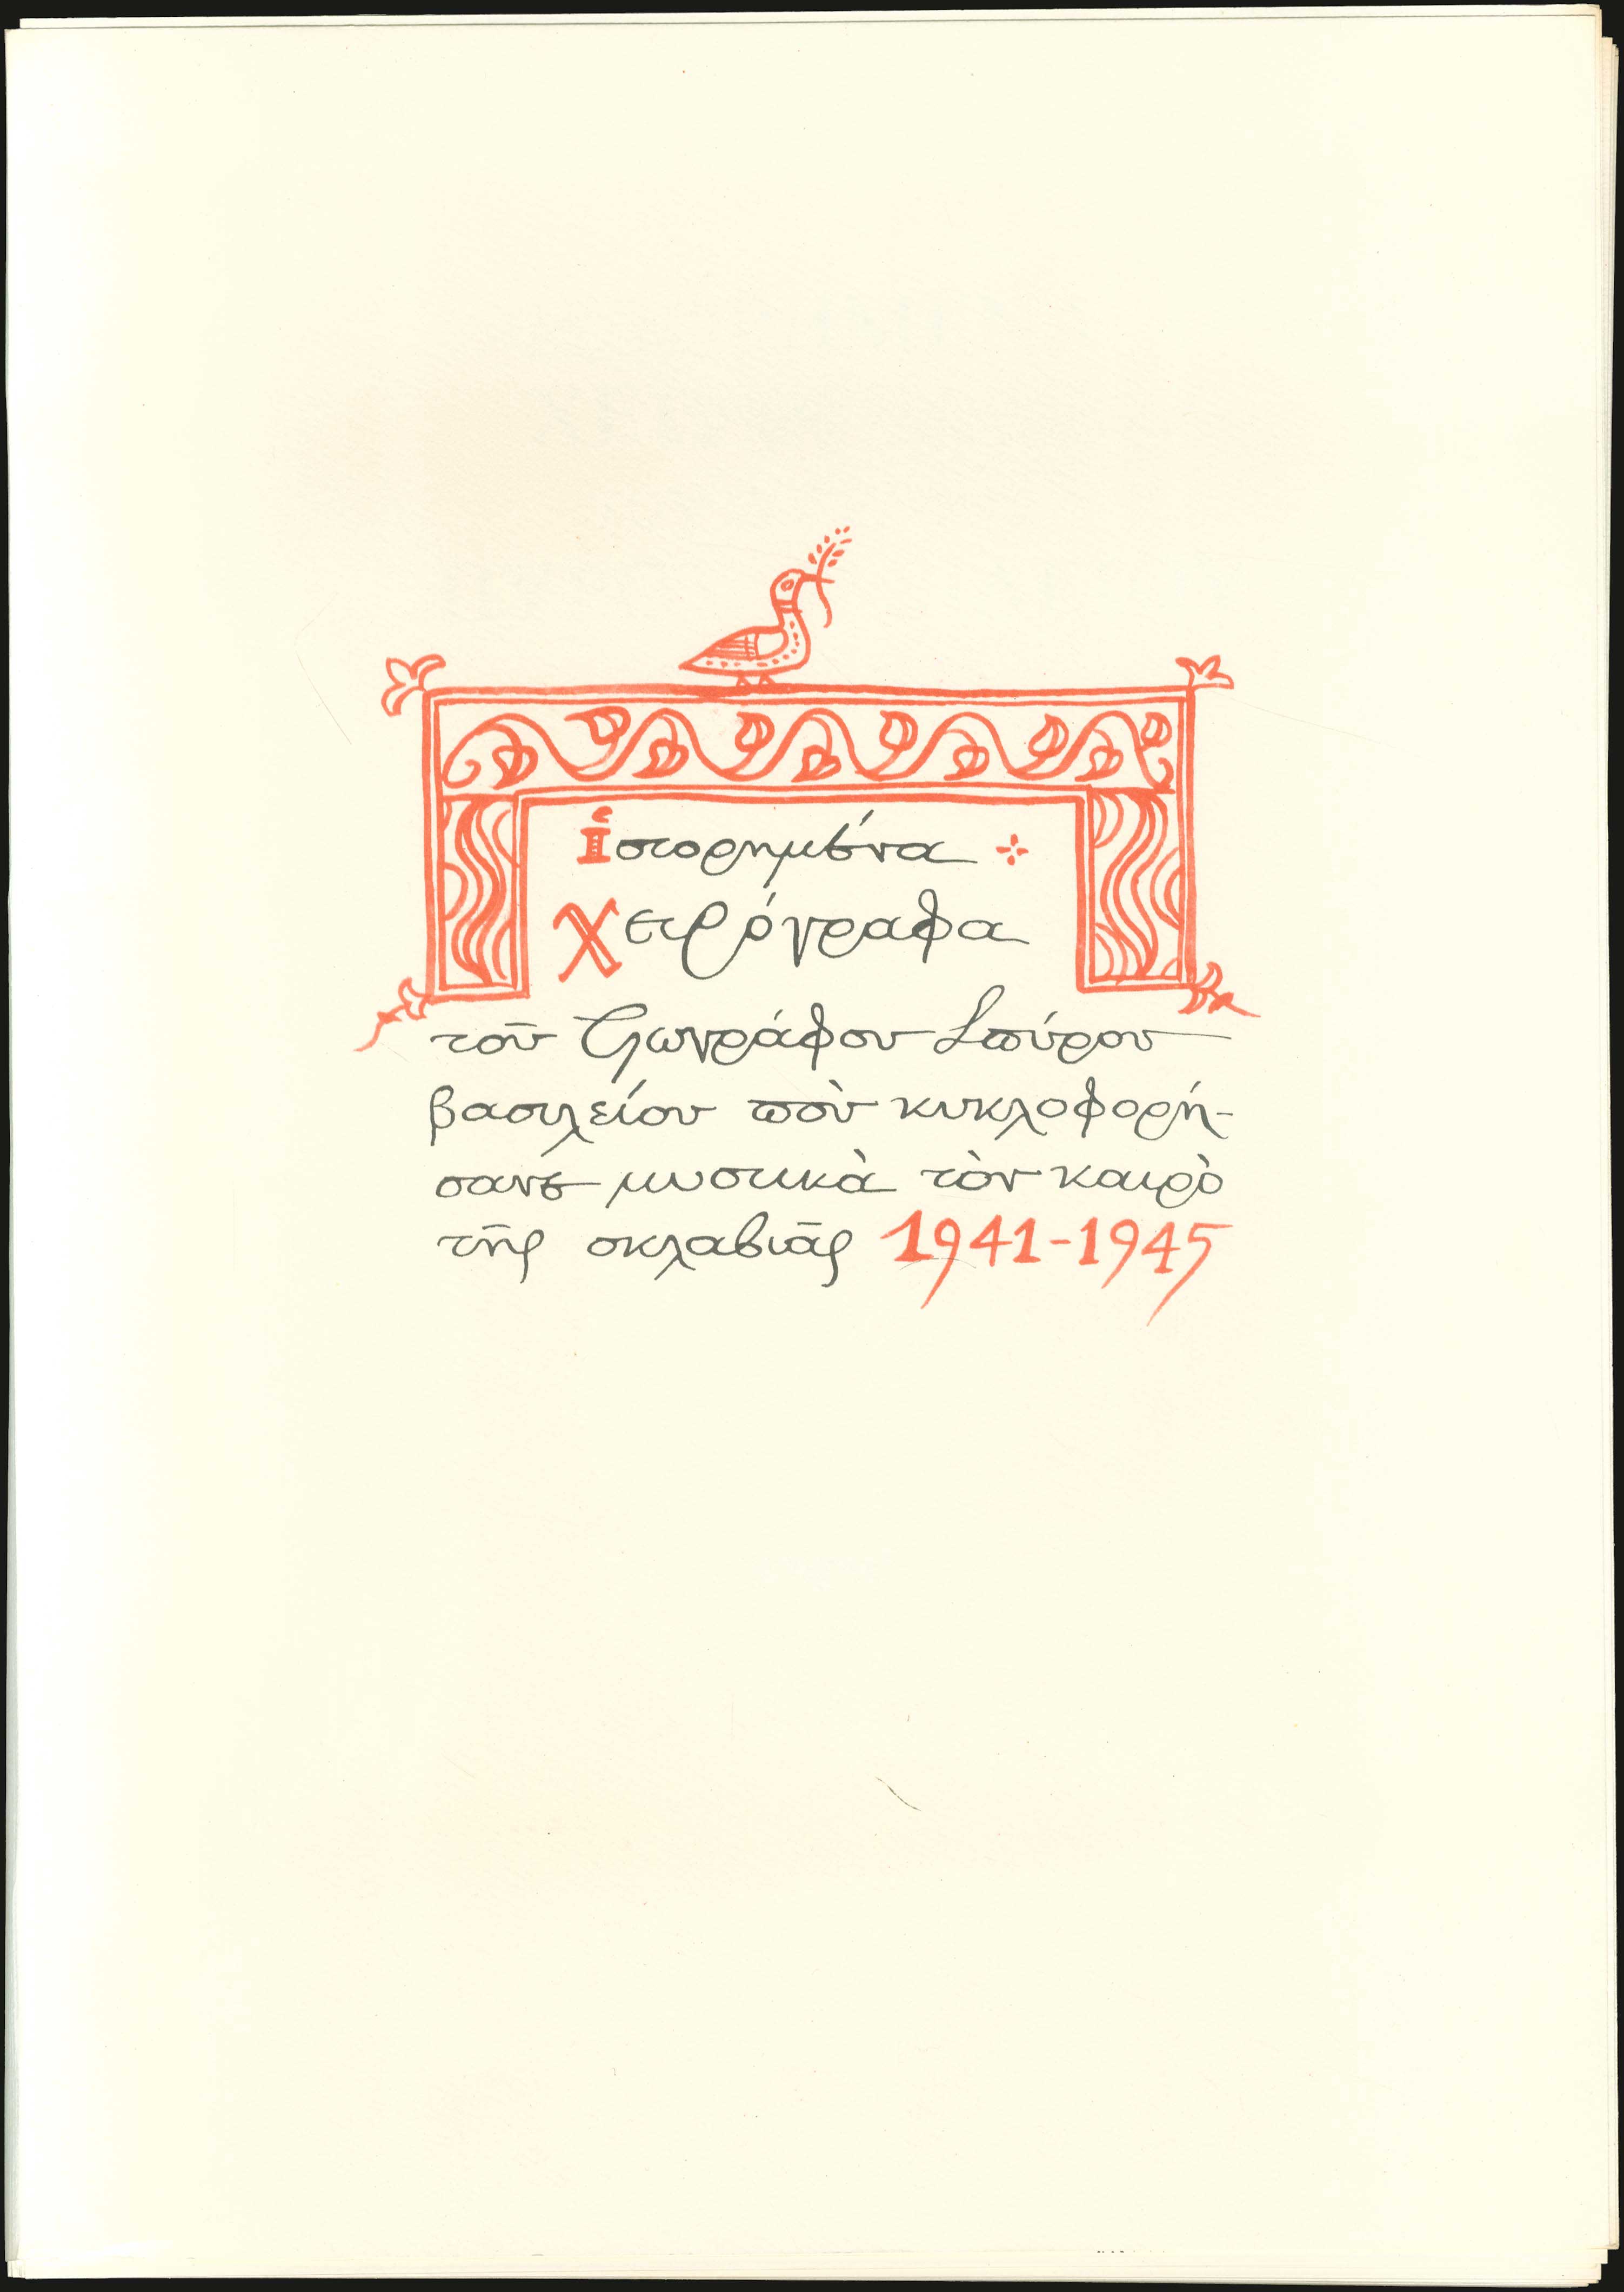 ἱστορημένα
Χειρόγραφα
τοῦ Ζωγράφου Σπύρου
βασιλείου ποὺ κυκλοφορή-
σανε μυστικὰ τὸν καιρὸ
τῆς σκλαβιᾶς 1941-1945